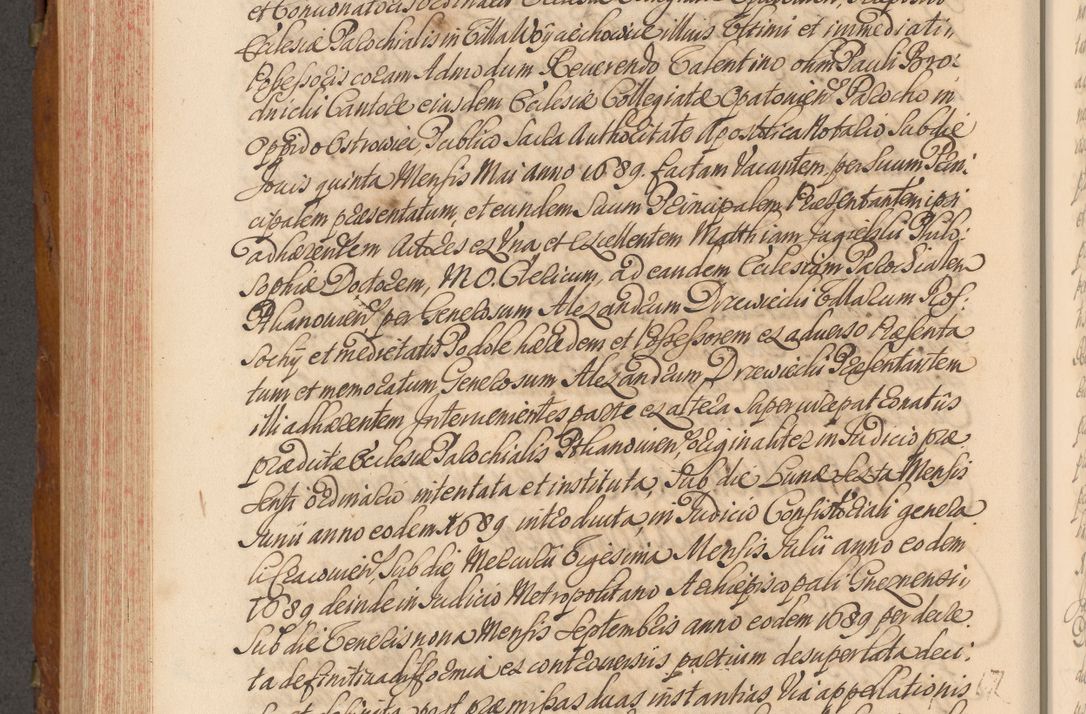 Ecclesiæ Parochialis in Villa Woyciechowice illius Ultimi et immediati
Possessoris coram Admodum Reverendo Valentino olim Pauli Bro:
dnicki Cantore eiusdem Ecclesiæ Collegiatæ Opatovien Parocho in
Oppido Ostrowiec Publico Sacra Authoritate Apostolica Notario Sub die
Jovis quinta Mensis Mai anno 1689. factam Vacantem, per suum Prin:
cipalem præsentatum, et eundem Suum Principalem, Præsentantem ipsi
adhærentem Actores ex Una, et Excellentem Matthiam Jagielski Philo:
Sophiæ Doctorem, M. O. Clericum, ad eandem Ecclesiam Parochialem
per Generosum Alexandrum Drzewiecki Villarum Ros:
Sochy et medietatis Podole hæredem et Possessorem ex adverso Præsenta
tum et memoratum Generosum Alexandrum Drzewiecki Præsentantem
illi adhærentem Intervenientes parte ex altera Super iurepatronatus
prædictæ Ecclesiæ Parochialis originaliter in Judicio præ
Senti ordinario intentata et instituta, Sub die Lunæ Sexta Mensis
Junii anno eodem 1689 introducta, in Judicio Consistoriali genera
li Cracovien, Sub die Mercurii Vigesima Mensis Julii anno eodem
1689 deinde in Judicio Metropolitano Archiepiscopali Gneznensi,
Sub die Veneris nona Mensis Septembris anno eodem 1689 per decre:
ta definitiva difformia ex controversiis partium desuper lata deci:
post præmissas duas instantias Via appellationis